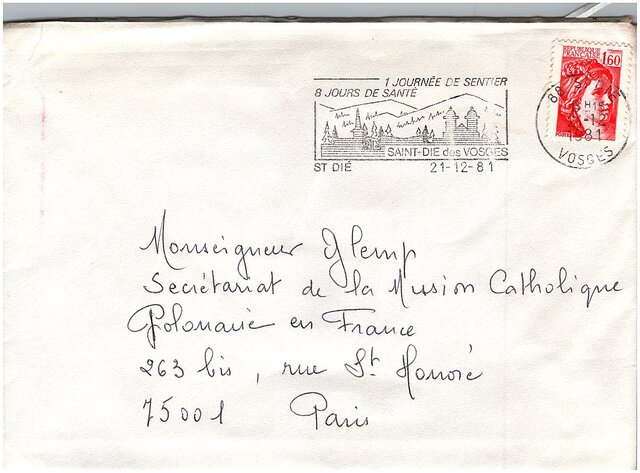 1 JOURNÉE DE SENTIER
8 JOURS DE SANTÉ
SAINT-DIE des VOSGES
ST DIÉ 21-12-81
REPUBLIQUE
FRANÇAISE
1,60
88
1981
VOSGES
Monseigneur Glemp
Secrétariat de la Mission Catholique
Polonaise en France
263 bis, rue St Honoré
75001 Paris